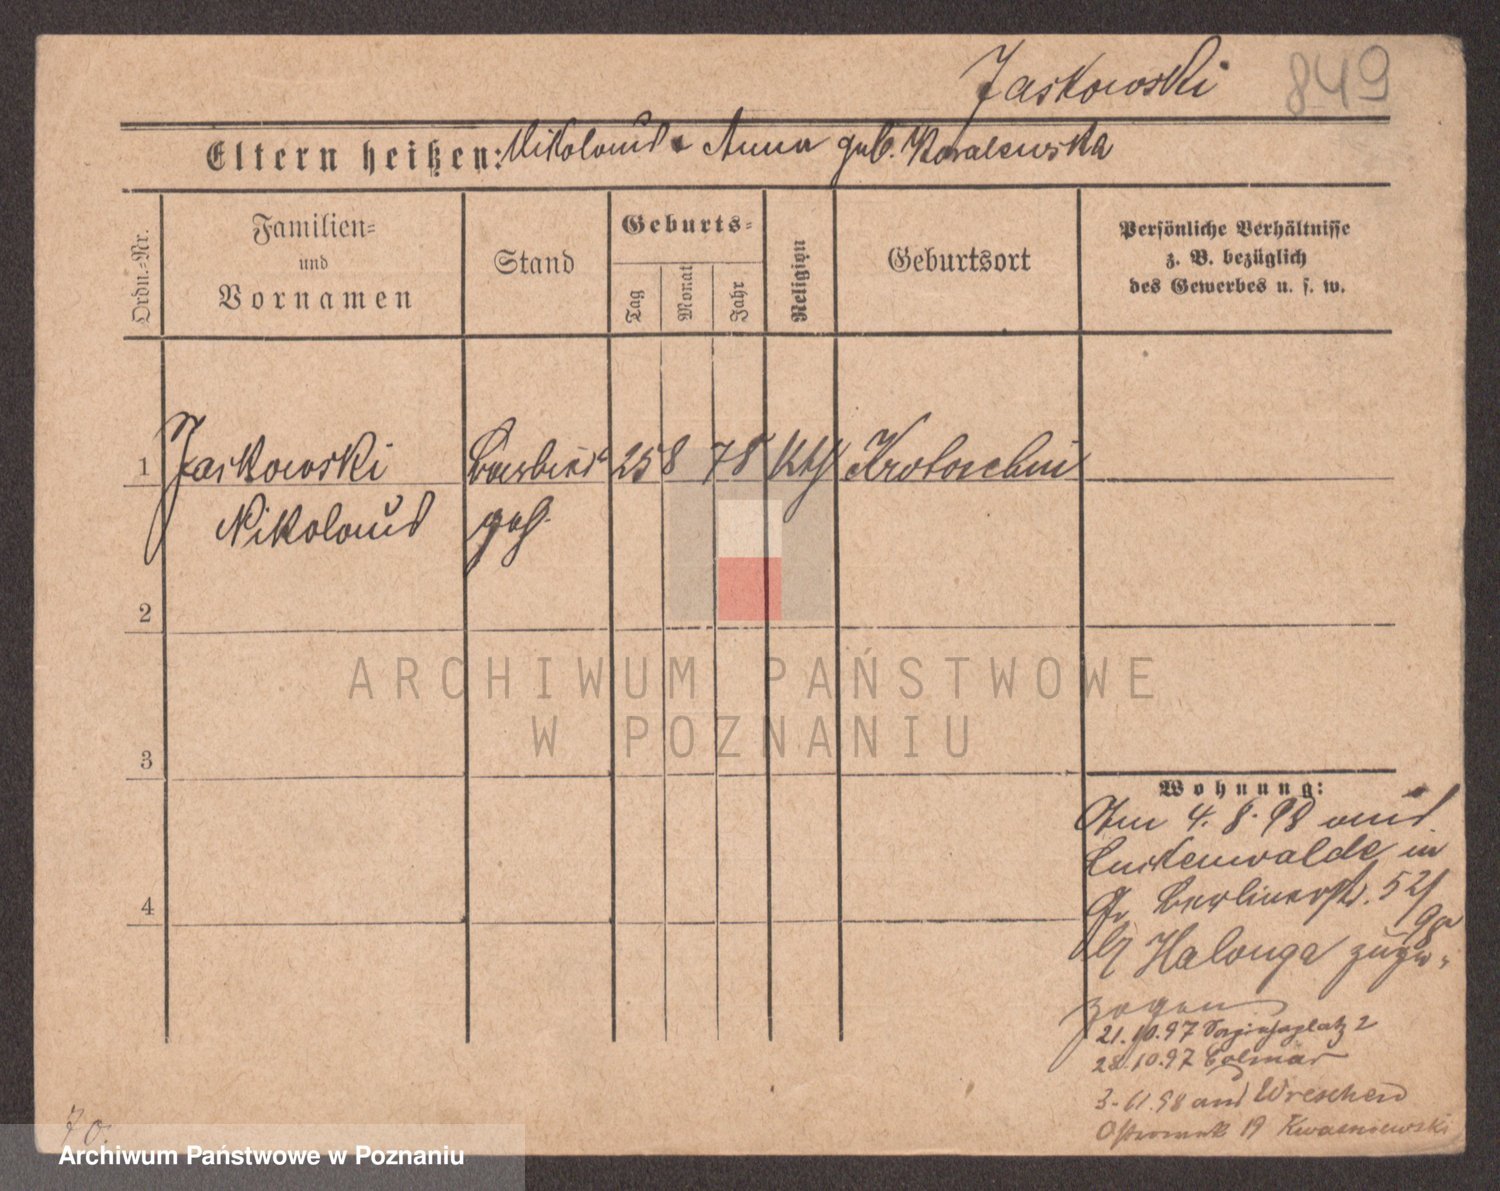 Jaskowski 849
Eltern heißen: Nikolaus & Anna geb. Kowalewska
Ordn.=Nr.
Familien=
und
Vornamen
Stand
Geburts=
Tag
Monat
Jahr
Religion
Geburtsort
Persönliche Verhältnisse
z. B. bezüglich
des Gewerbes u. s. w.
1 Jaskowski Barbier 25 8 78 kth Krotoschin
Nikolaus geh.
2
ARCHIWUM PAŃSTWOWE
W POZNANIU
3
Wohnung:
Am 4. 8. 98 aus
Luckenwalde in
Gr. Berlinerstr. 52/
98
bei Halonga zuge-
zogen
21.10.97 2
28.10.97 Colmar
3. 11. 98 aus Wreschen
19 Kwasniewski
4
70.
Archiwum Państwowe w Poznaniu